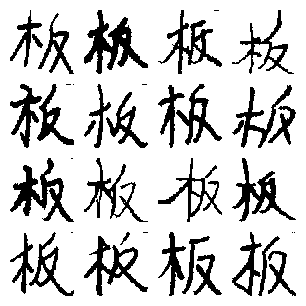 板板板板
板板板板
板板板板
板板板板